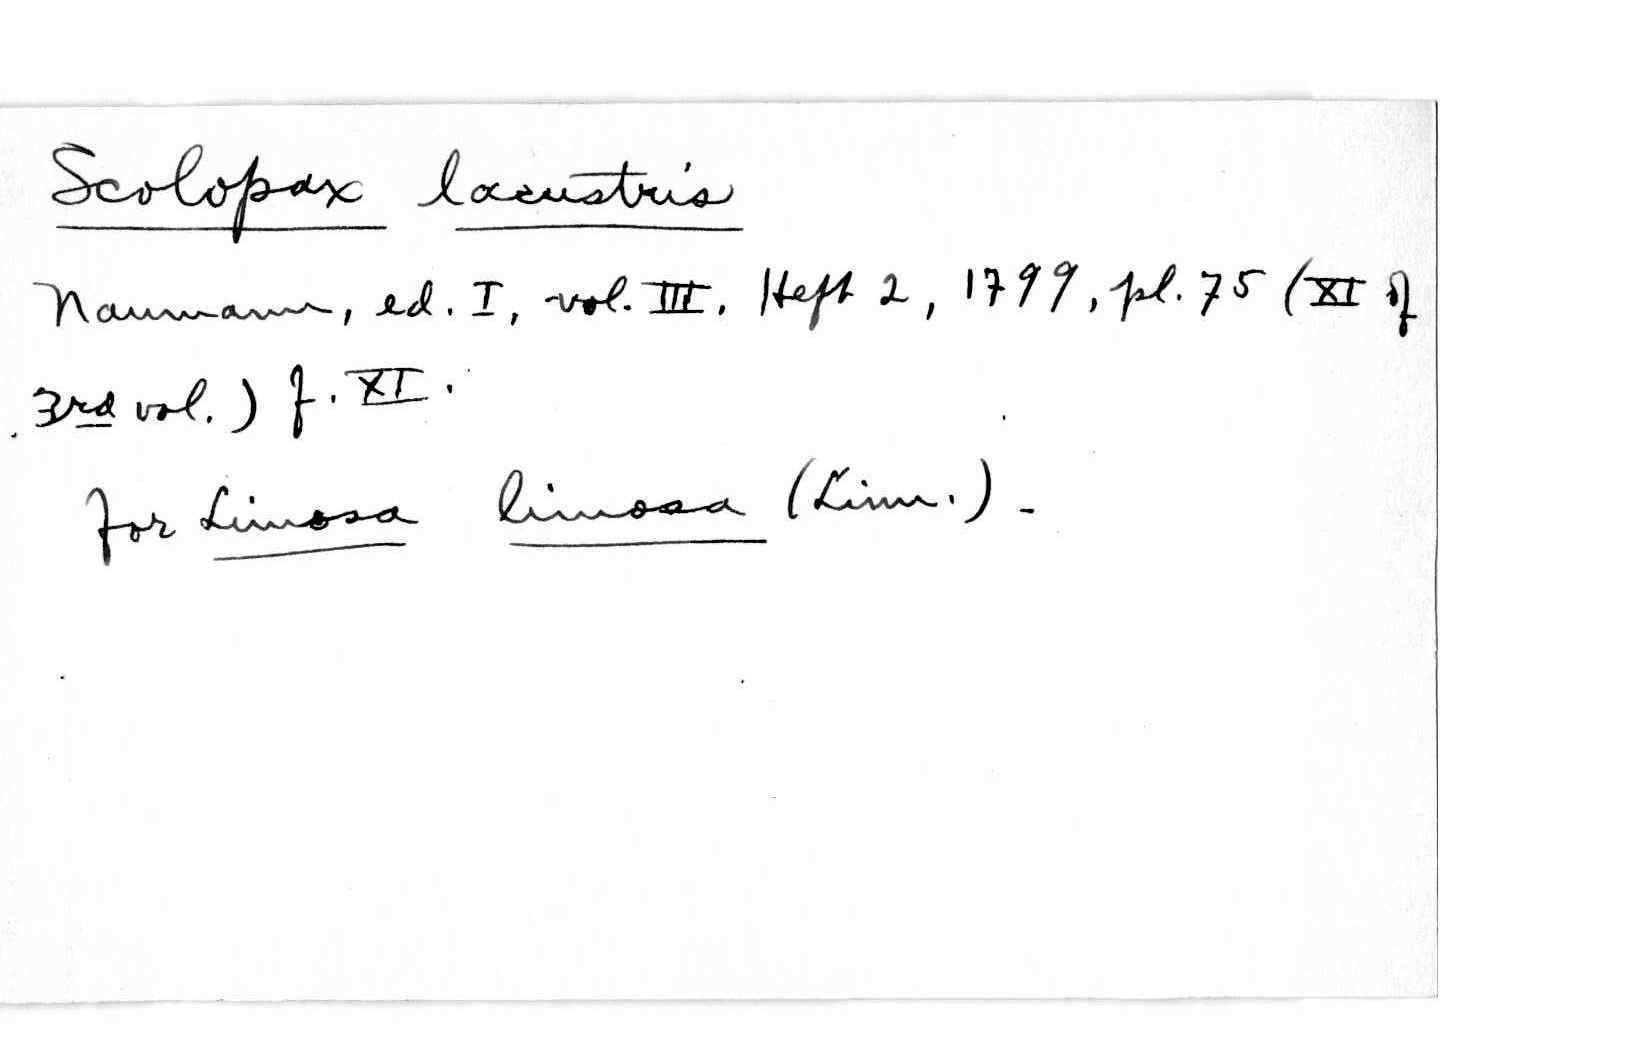 Scolopax lacustris
Naumann, ed. I, vol. III. Heft 2, 1799, pl. 75 (XI of
3rd vol.) f. XI.
for Limosa limosa (Linn.).